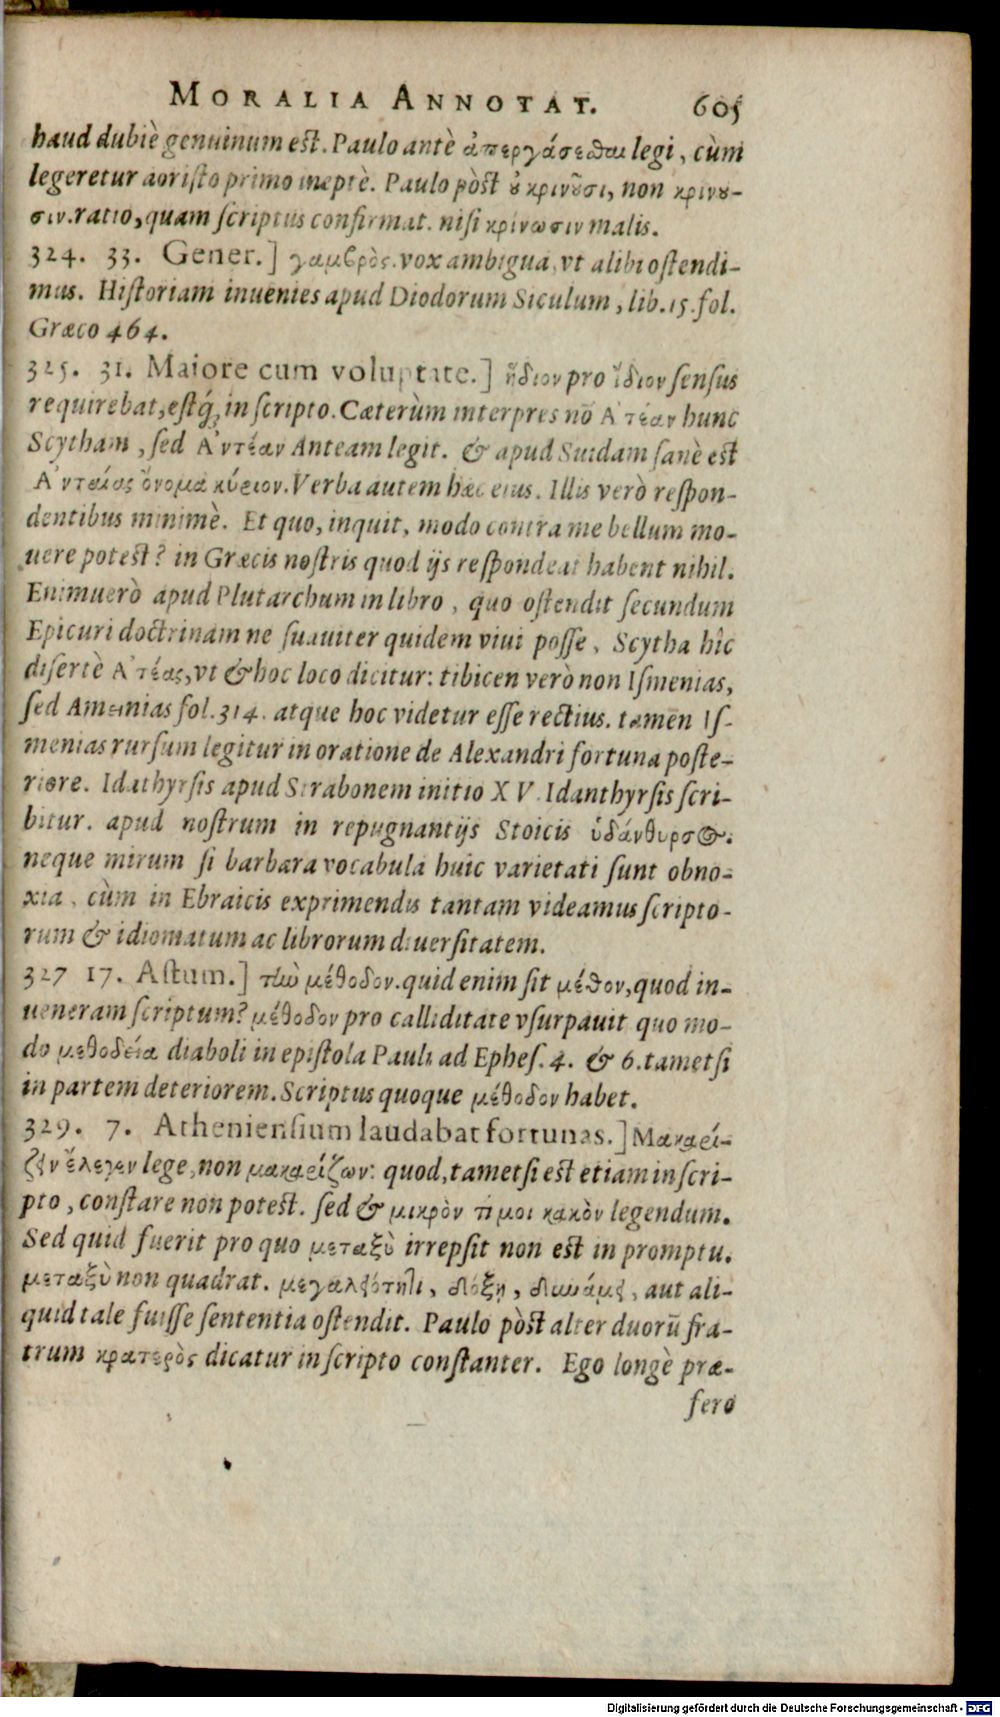 MORALIA ANNOTAT. 605
haud dubiè genuinum est. Paulo antè ἀπεργάσεσθαι legi, cùm
legeretur aoristo primo ineptè. Paulo pòst ȣ κρινοῦσι, non κρινȣ-
σιν. ratio, quam scriptus confirmat. nisi κρίνωσιν malis.
324. 33. Gener.] γαμβρὸς. vox ambigua, vt alibi ostendi-
mus. Historiam inuenies apud Diodorum Siculum, lib. 15. fol.
Græco 464.
325. 31. Maiore cum voluptate.] ἥδιον pro ἴδιον sensus
requirebat, estq́; in scripto. Cæterùm interpres nō Ἀτέαν hunc
Scytham, sed Ἀντέαν Anteam legit. & apud Suidam sanè est
Ἀνταίας ὄνομα κύριον. Verba autem hæc eius. Illis verò respon-
dentibus minimè. Et quo, inquit, modo contra me bellum mo-
uere potest? in Græcis nostris quod ijs respondeat habent nihil.
Enimuerò apud Plutarchum in libro, quo ostendit secundum
Epicuri doctrinam ne suauiter quidem viui posse, Scytha hîc
disertè Ἀτέας, vt & hoc loco dicitur: tibicen verò non Ismenias,
sed Ameinias fol. 314. atque hoc videtur esse rectius. tamen Is-
menias rursum legitur in oratione de Alexandri fortuna poste-
riore. Idathyrsis apud Strabonem initio XV. Idanthyrsis scri-
bitur. apud nostrum in repugnantijs Stoicis ὑδάνθυρσος.
neque mirum si barbara vocabula huic varietati sunt obno-
xia, cùm in Ebraicis exprimendis tantam videamus scripto-
rum & idiomatum ac librorum diuersitatem.
327 17. Astum.] τὼ μέθοδον. quid enim sit μέθον, quod in-
ueneram scriptum? μέθοδον pro calliditate vsurpauit quo mo-
do μεθοδεία diaboli in epistola Pauli ad Ephes. 4. & 6. tametsi
in partem deteriorem. Scriptus quoque μέθοδον habet.
329. 7. Atheniensium laudabat fortunas.] Μακαρί-
ζειν ἔλεγεν lege, non μακαρίζων: quod, tametsi est etiam in scri-
pto, constare non potest. sed & μικρὸν τί μοι κακὸν legendum.
Sed quid fuerit pro quo μεταξὺ irrepsit non est in promptu.
μεταξὺ non quadrat. μεγαλειότητι, δόξῃ, δυνάμει, aut ali-
quid tale fuisse sententia ostendit. Paulo pòst alter duorū fra-
trum κρατερὸς dicatur in scripto constanter. Ego longè præ-
fero
Digitalisierung gefördert durch die Deutsche Forschungsgemeinschaft - DFG